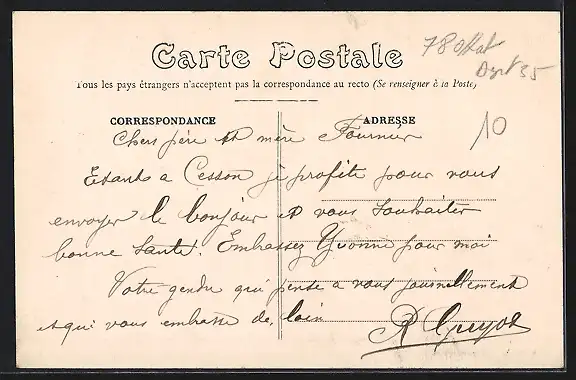 Carte Postale
Tous les pays étrangers n'acceptent pas la correspondance au recto (Se renseigner à la Poste)
10
CORRESPONDANCE
ADRESSE
Chers père et mère Fournier
Etants a Cesson je profite pour vous
envoyer le bonjour et vous souhaiter
bonne santé. Embrassez Yvonne pour moi
Votre gendre qui pense a vous journellement
et qui vous embrasse de loin
R Guyot